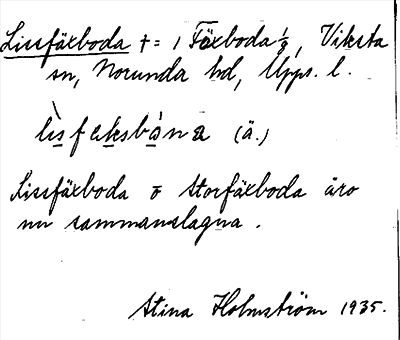 Lissfäxboda t = 1 Fäxboda 1/8, Viksta
sn, Norunda hd, Upps. l.
lìsfaksbòna (ä.)
Lissfäxboda o Storfäxboda äro
nu sammanslagna.
Stina Holmström 1935.